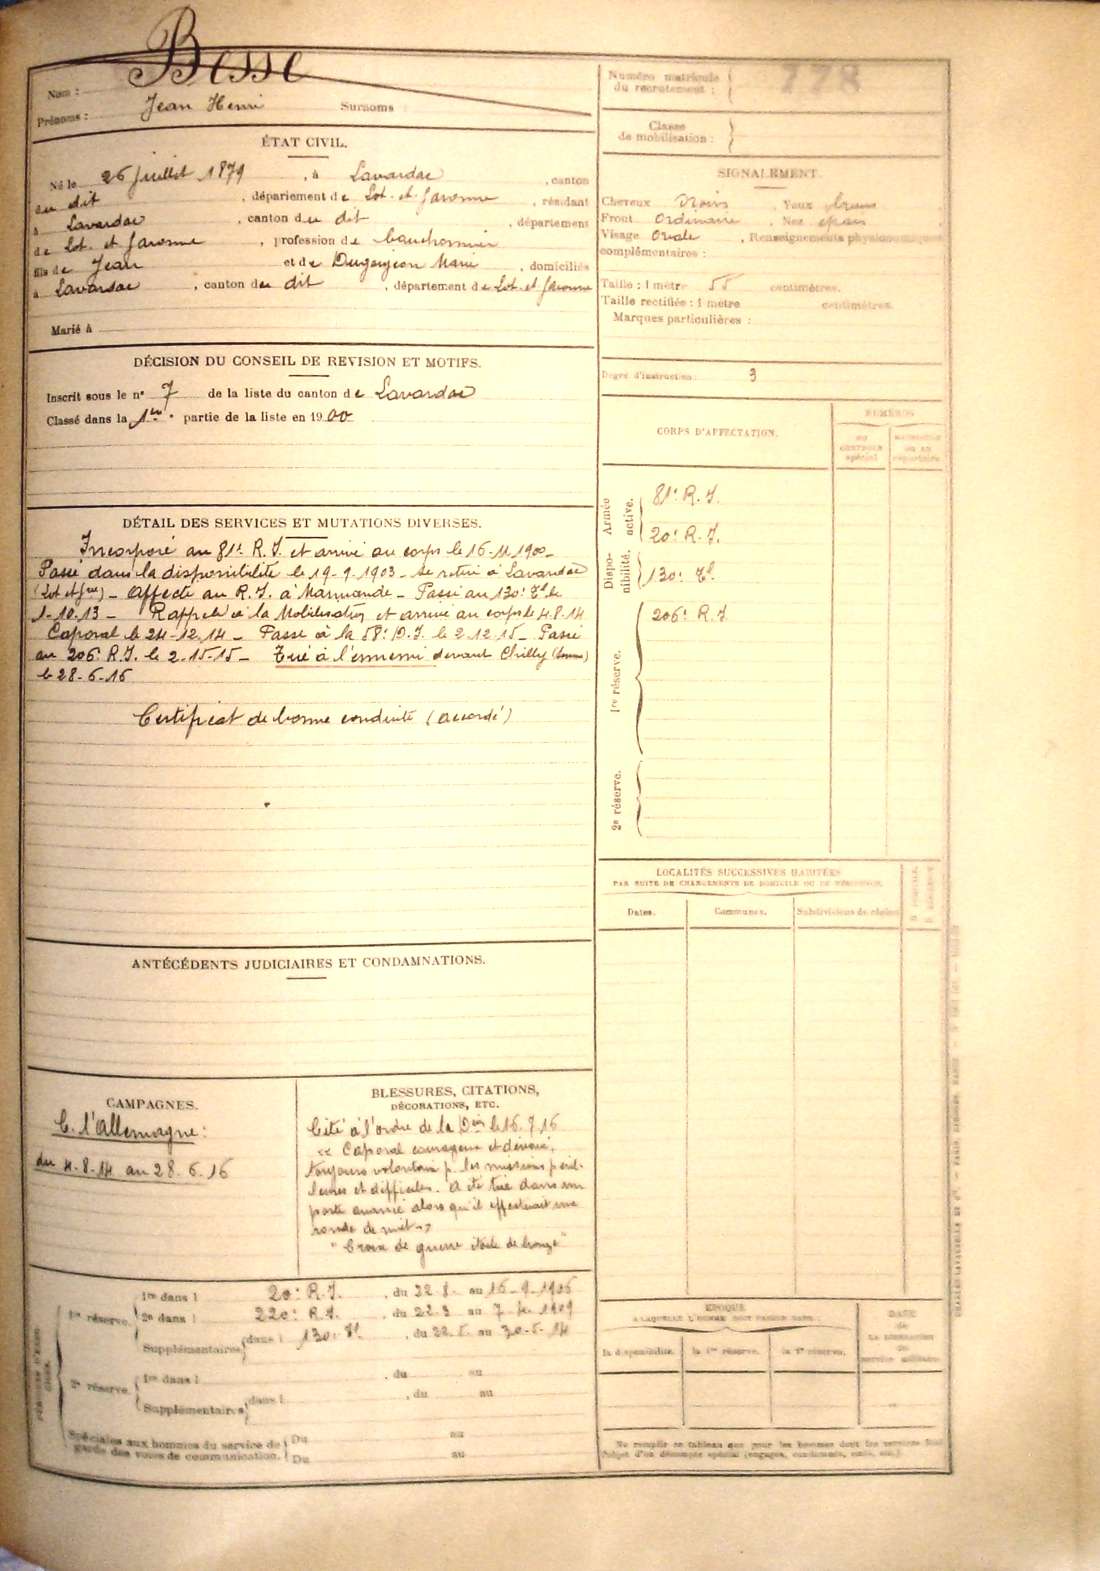 Nom : Besse
Prénoms : Jean Henri Surnoms
ÉTAT CIVIL.
Né le 26 Juillet 1879, à Lavardac, canton
au dit, département de Lot-et-Garonne, résidant
à Lavardac, canton du dit, département
de Lot-et-Garonne, profession de bouchonnier
fils de Jean et de Marie, domiciliés
à Lavardac, canton du dit, département de Lot-et-Garonne
Marié à
DÉCISION DU CONSEIL DE REVISION ET MOTIFS.
Inscrit sous le n° 7 de la liste du canton de Lavardac
Classé dans la 1re partie de la liste en 1900
DÉTAIL DES SERVICES ET MUTATIONS DIVERSES.
Incorporé au 81e R.I. et arrivé au corps le 16-11-1900-
Passé dans la disponibilité le 19-9-1903 - se retire à Lavardac
(Lot et Gne) - affecté au R.I. à Marmande - Passé au 130e Tal le
1-10-13 - Rappelé à la Mobilisation et arrivé au corps le 4-8-14
Caporal le 24-12-14 - Passé à la 58e D.I. le 2-12-15 - Passé
au 206e R.I. le 2-15-15 - Tué à l'ennemi devant Chilly (Somme)
le 28-6-16
Certificat de bonne conduite (accordé)
ANTÉCÉDENTS JUDICIAIRES ET CONDAMNATIONS.
CAMPAGNES.
C. l'Allemagne :
du 4-8-14 au 28-6-16
BLESSURES, CITATIONS,
DÉCORATIONS, ETC.
Cité à l'ordre de la Don le 16.7.16
"Caporal courageux et dévoué,
toujours volontaire p. les missions péril-
leuses et difficiles. A été tué dans un
poste avancé alors qu'il effectuait une
ronde de nuit"
"Croix de guerre étoile de bronze"
1re réserve.
1re dans l 20e R.I., du 22-8- au 16-9-1906
2e dans l 220e R.I., du 22-3 au 7-4-1909
Supplémentaires dans l 130e Tal, du 22-5 au 30-5-14
2e réserve.
1re dans l, du au
Supplémentaires dans l, du au
Spéciales aux hommes du service de
garde des voies de communication.
Du au
Du au
Numéro matricule
du recrutement : 778
Classe
de mobilisation :
SIGNALEMENT.
Cheveux noirs, Yeux
Front Ordinaire, Nez épais
Visage Ovale, Renseignements physionomiques
complémentaires :
Taille : 1 mètre 55 centimètres.
Taille rectifiée : 1 mètre centimètres.
Marques particulières :
Degré d'instruction : 3
CORPS D'AFFECTATION.
NUMÉROS
au
contrôle
spécial
matricule
ou au
répertoire
Armée
active.
81e R.I.
20e R.I.
Dispo-
nibilité.
130e Tal
1re réserve.
206e R.I
2e réserve.
LOCALITÉS SUCCESSIVES HABITÉES
PAR SUITE DE CHANGEMENTS DE DOMICILE OU DE RÉSIDENCE.
Dates.
Communes.
Subdivisions de région
EPOQUE
A LAQUELLE L'HOMME DOIT PASSER DANS :
la disponibilité.
la 1re réserve.
DATE
de
LA LIBÉRATION
du
service militaire.
Ne remplir ce tableau que pour les hommes dont les services font
l'objet d'un décompte spécial (engagés, condamnés, omis, etc.)